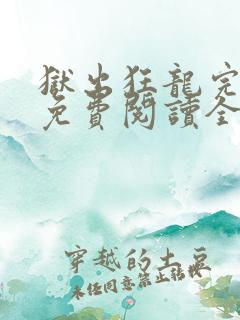 獄出狂龍完
免費閱讀全
穿越的土豆
未經同意禁止轉載